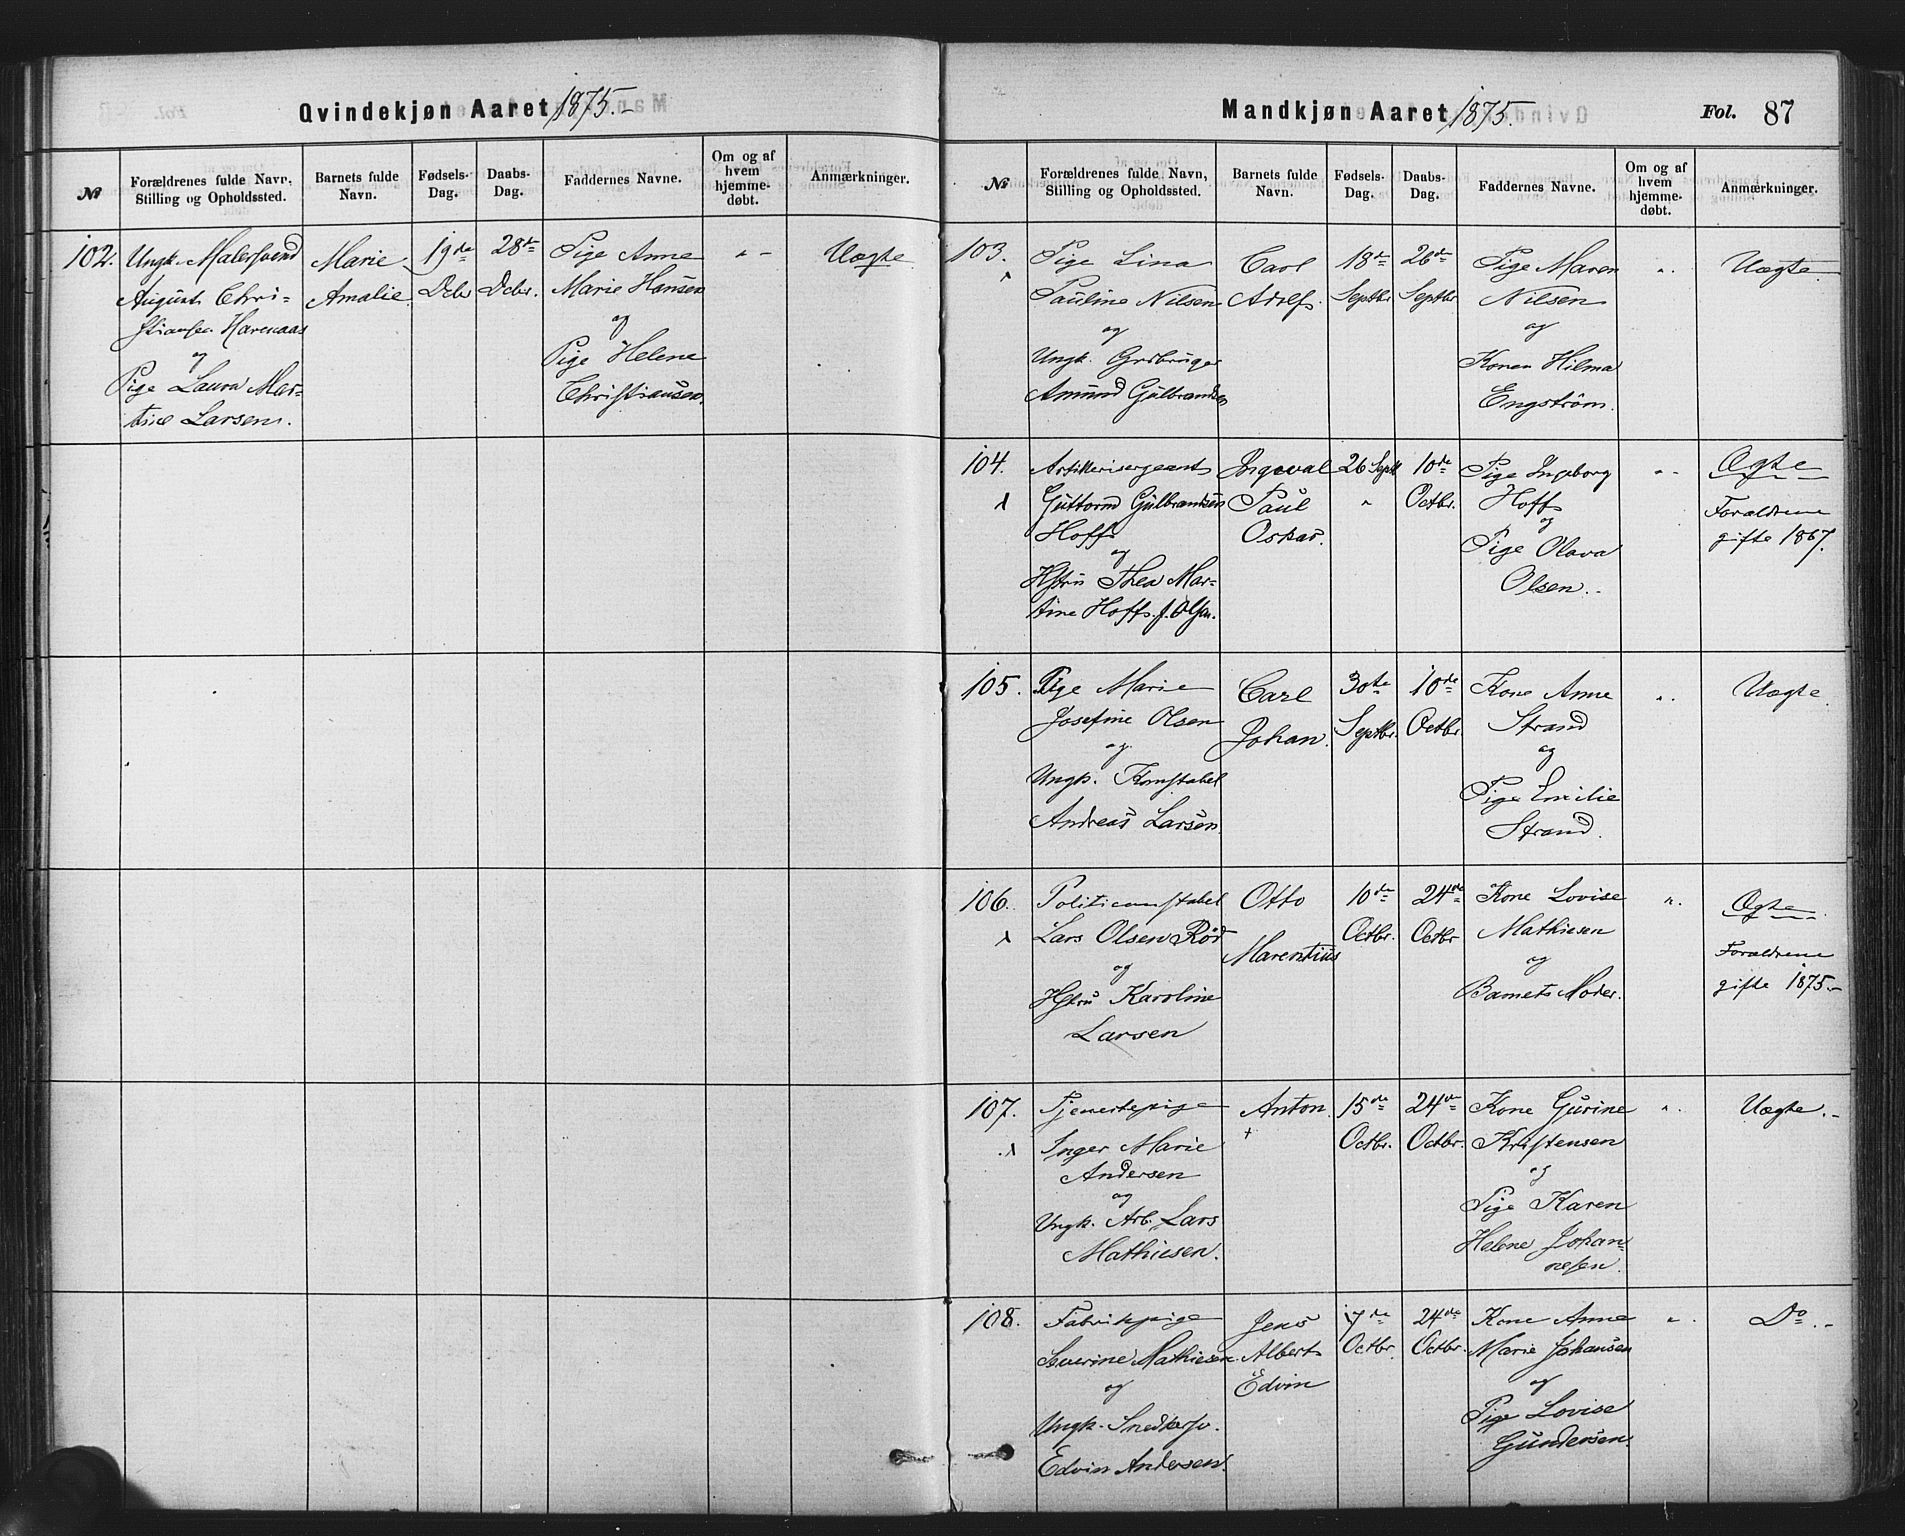 Qvindekjøn Aaret 1875.-
№
Forældrenes fulde Navn,
Stilling og Opholdssted.
Barnets fulde
Navn.
Fødsels-
Dag.
Daabs-
Dag.
Faddernes Navne.
Om og af
hvem
hjemme-
døbt.
Anmærkninger.
102.
Ungk. Malersvend
August Chri-
stiansen
og
Pige Laura Mar-
tine Larsen.
Marie
Amalie.
19de
Dcbr
28de
Dcbr.
Pige Anne
Marie Hansen
og
Pige Helene
Christiansen.
" -
Uægte
Mandkjøn Aaret 1875.
Fol. 87
№
Forældrenes fulde Navn,
Stilling og Opholdssted.
Barnets fulde
Navn.
Fødsels-
Dag.
Daabs-
Dag.
Faddernes Navne.
Om og af
hvem
hjemme-
døbt.
Anmærkninger.
103.
Pige Lina
Pauline Nilsen
og
Ungk. Grdbruger
Amund Gulbrandsen
Carl
Adolf.
18de
Septbr
26de
Septbr.
Pige Maren
Nilsen
og
Konen Hilma
Engström.
".
Uægte
104.
Artillerisergeant
Guttorm Gulbrandsen
Hoff
og
Hstru Thea Mar-
tine Hoff f. Olsen.
Ingeval
Paul
Oskar.
26 Septb
"
10de
Octbr.
Pige Ingeborg
Hoff
og
Pige Olava
Olsen.
" "
Ægte
Forældrene
gifte 1867.
105.
Pige Marie
Josefine Olsen
og
Ungk. Konstabel
Andreas Larsen.
Carl
Johan.
30te
Septbr.
10de
Octbr.
Kone Anne
Strand
og
Pige Emilie
Strand.
".
Uægte
106.
Politiconstabel
Lars Olsen Rød
og
Hstru Karoline
Larsen
Otto
Marentius
10de
Octbr.
24de
Octbr
Kone Lovise
Mathiesen
og
Barnets Moder.
".
Ægte
Forældrene
gifte 1875.-
107.
Tjenestepige
Inger Marie
Andersen
og
Ungk. Arb. Lars
Mathiesen.
Anton.
+
15de
Octbr.
24de
Octbr.
Kone Gurine
Kristensen
og
Pige Karen
Helene Johan-
nesen.
".
Uægte.-
108.
Fabrikpige
Severine Mathiesen
og
Ungk. Snedkersv.
Edvin Andersen.
Jens
Albert
Edvin
17de
Octbr.
24de
Octbr.
Kone Anne
Marie Johansen
og
Pige Lovise
Gundersen.
".
Do.-